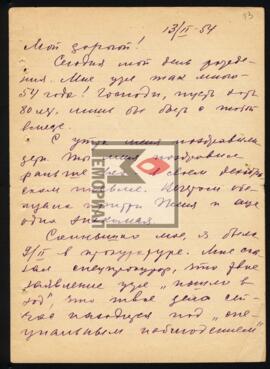 13
13/II-54
Мой дорогой!
Сегодня мой день рождения. Мне уже так много
54 года! Господи, пусть хоть
80 лет, лишь бы быть с тобой
вместе.
С утра меня поздравили
дети. Ты меня поздравил
раньше в своем декабрьском письме.
МЕМОРИАЛ
одна знакомая.
Солнышко мое, я была
9/II в прокуратуре. Мне сказал спецпрокурор, что твое
заявление уже "пошло в
ход", что твое дело сейчас находится под "специальным наблюдением"